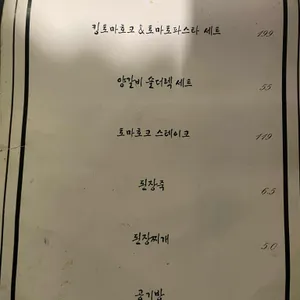 킹토마호크 & 토마토파스타 세트 199
양갈비 숄더랙 세트 55
토마호크 스테이크 119
된장죽 6.5
된장찌개 5.0
공기밥